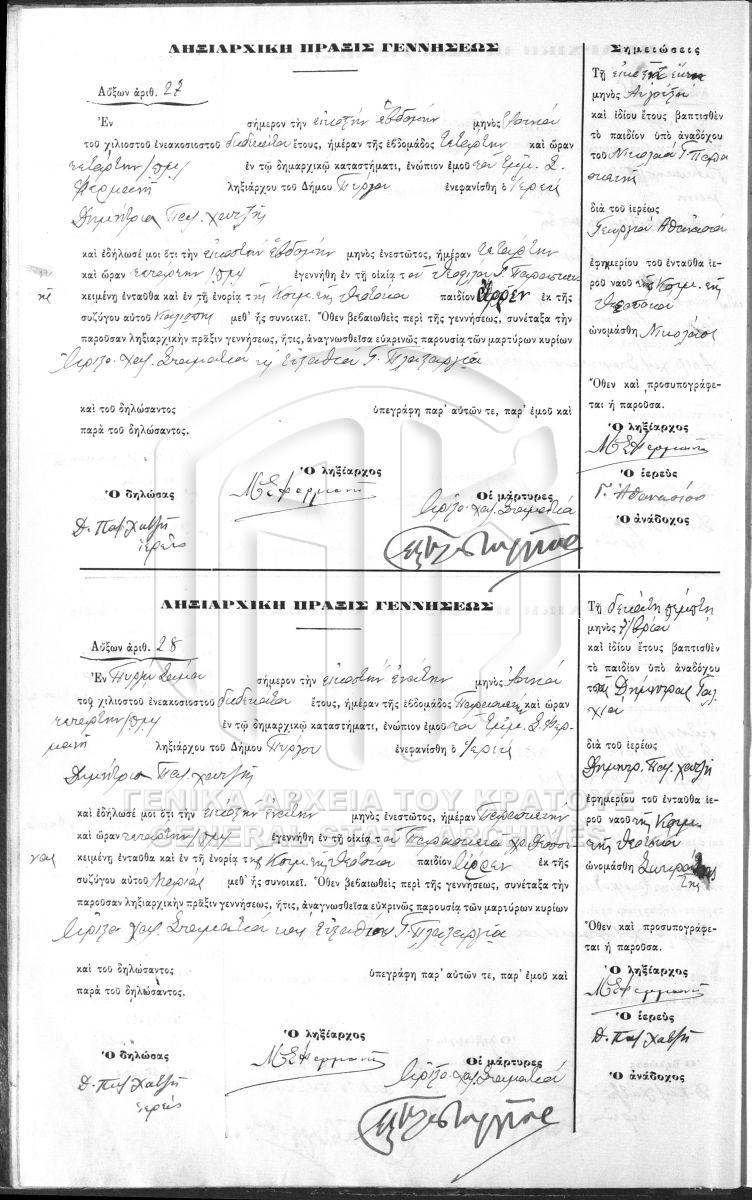 ΛΗΞΙΑΡΧΙΚΗ ΠΡΑΞΙΣ ΓΕΝΝΗΣΕΩΣ
Αὔξων ἀριθ. 27
Ἐν σήμερον τὴν εἰκοστὴν ἑβδόμην μηνὸς
τοῦ χιλιοστοῦ ἐνεακοσιοστοῦ δωδεκάτου ἔτους, ἡμέραν τῆς ἑβδομάδος τετάρτην καὶ ὥραν
τετάρτην /πμ/ ἐν τῷ δημαρχικῷ καταστήματι, ἐνώπιον ἐμοῦ τοῦ Ἐμμ. Σ.
Φερμανῆ ληξιάρχου τοῦ Δήμου Πύργου ἐνεφανίσθη ὁ ἱερεὺς
Δημήτριος Παπ. χατζῆς
καὶ ἐδήλωσέ μοι ὅτι τὴν εἰκοστὴν ἑβδόμην μηνὸς ἐνεστῶτος, ἡμέραν τετάρτην
καὶ ὥραν τετάρτην /πμ/ ἐγεννήθη ἐν τῇ οἰκίᾳ τοῦ
κειμένῃ ἐνταῦθα καὶ ἐν τῇ ἐνορίᾳ τῆς Κοιμ. τῆς Θεοτόκου παιδίον ἄρρεν ἐκ τῆς
συζύγου αὐτοῦ Καλιόπης μεθ' ἧς συνοικεῖ. Ὅθεν βεβαιωθεὶς περὶ τῆς γεννήσεως, συνέταξα τὴν
παροῦσαν ληξιαρχικὴν πρᾶξιν γεννήσεως, ἥτις, ἀναγνωσθεῖσα εὐκρινῶς παρουσίᾳ τῶν μαρτύρων κυρίων
χατ. Σταματίου καὶ Εὐσταθίου Γ.
καὶ τοῦ δηλώσαντος ὑπεγράφη παρ' αὐτῶν τε, παρ' ἐμοῦ καὶ
παρὰ τοῦ δηλώσαντος.
Ὁ δηλώσας
Δ. Παπ χατζῆ
ἱερεὺς
Ὁ ληξίαρχος
ΜΣΦερμανῆς
Οἱ μάρτυρες
Σημειώσεις
Τῇ εἰκοστῇ ἕκτῃ
μηνὸς Αὐγούστου
καὶ ἰδίου ἔτους βαπτισθὲν
τὸ παιδίον ὑπὸ ἀναδόχου
τοῦ Νικολάου Γ. Παρα
σκευῆ
διὰ τοῦ ἱερέως
Γεωργίου Ἀθανασίου
ἐφημερίου τοῦ ἐνταῦθα ἱε-
ροῦ ναοῦ τῆς Κοιμ. τῆς
Θεοτόκου
ὠνομάσθη Νικόλαος
Ὅθεν καὶ προσυπογράφε-
ται ἡ παροῦσα.
Ὁ ληξίαρχος
ΜΣΦερμανῆς
Ὁ ἱερεὺς
Γ. Ἀθανασίου
Ὁ ἀνάδοχος
ΛΗΞΙΑΡΧΙΚΗ ΠΡΑΞΙΣ ΓΕΝΝΗΣΕΩΣ
Αὔξων ἀριθ. 28
Ἐν Πύργῳ Σάμου σήμερον τὴν εἰκοστὴν ἐνάτην μηνὸς
τοῦ χιλιοστοῦ ἐνεακοσιοστοῦ δωδεκάτου ἔτους, ἡμέραν τῆς ἑβδομάδος Παρασκευὴν καὶ ὥραν
τετάρτην /πμ/ ἐν τῷ δημαρχικῷ καταστήματι, ἐνώπιον ἐμοῦ τοῦ Ἐμμ. Σ. Φερ-
μανῆ ληξιάρχου τοῦ Δήμου Πύργου ἐνεφανίσθη ὁ ἱερεὺς
Δημήτριος Παπ. χατζῆς
καὶ ἐδήλωσέ μοι ὅτι τὴν εἰκοστὴν ἐνάτην μηνὸς ἐνεστῶτος, ἡμέραν Παρασκευὴν
καὶ ὥραν τετάρτην /πμ/ ἐγεννήθη ἐν τῇ οἰκίᾳ τοῦ
κειμένῃ ἐνταῦθα καὶ ἐν τῇ ἐνορίᾳ τῆς Κοιμ. τῆς Θεοτόκου παιδίον ἄρρεν ἐκ τῆς
συζύγου αὐτοῦ Μαρίας μεθ' ἧς συνοικεῖ. Ὅθεν βεβαιωθεὶς περὶ τῆς γεννήσεως, συνέταξα τὴν
παροῦσαν ληξιαρχικὴν πρᾶξιν γεννήσεως, ἥτις, ἀναγνωσθεῖσα εὐκρινῶς παρουσίᾳ τῶν μαρτύρων κυρίων
χατ. Σταματίου καὶ Εὐσταθίου Γ.
καὶ τοῦ δηλώσαντος ὑπεγράφη παρ' αὐτῶν τε, παρ' ἐμοῦ καὶ
παρὰ τοῦ δηλώσαντος.
Ὁ δηλώσας
Δ. Παπ χατζῆ
ἱερεὺς
Ὁ ληξίαρχος
ΜΣΦερμανῆς
Οἱ μάρτυρες
Τῇ δεκάτῃ πέμπτῃ
μηνὸς
καὶ ἰδίου ἔτους βαπτισθὲν
τὸ παιδίον ὑπὸ ἀναδόχου
διὰ τοῦ ἱερέως
Δημητρ. Παπ. χατζῆ
ἐφημερίου τοῦ ἐνταῦθα ἱε-
ροῦ ναοῦ τῆς Κοιμ.
τῆς Θεοτόκου
ὠνομάσθη
Ὅθεν καὶ προσυπογράφε-
ται ἡ παροῦσα.
Ὁ ληξίαρχος
ΜΣΦερμανῆς
Ὁ ἱερεὺς
Δ. Παπ χατζῆ
Ὁ ἀνάδοχος
ΓΕΝΙΚΑ ΑΡΧΕΙΑ ΤΟΥ ΚΡΑΤΟΥΣ
GENERAL STATE ARCHIVES